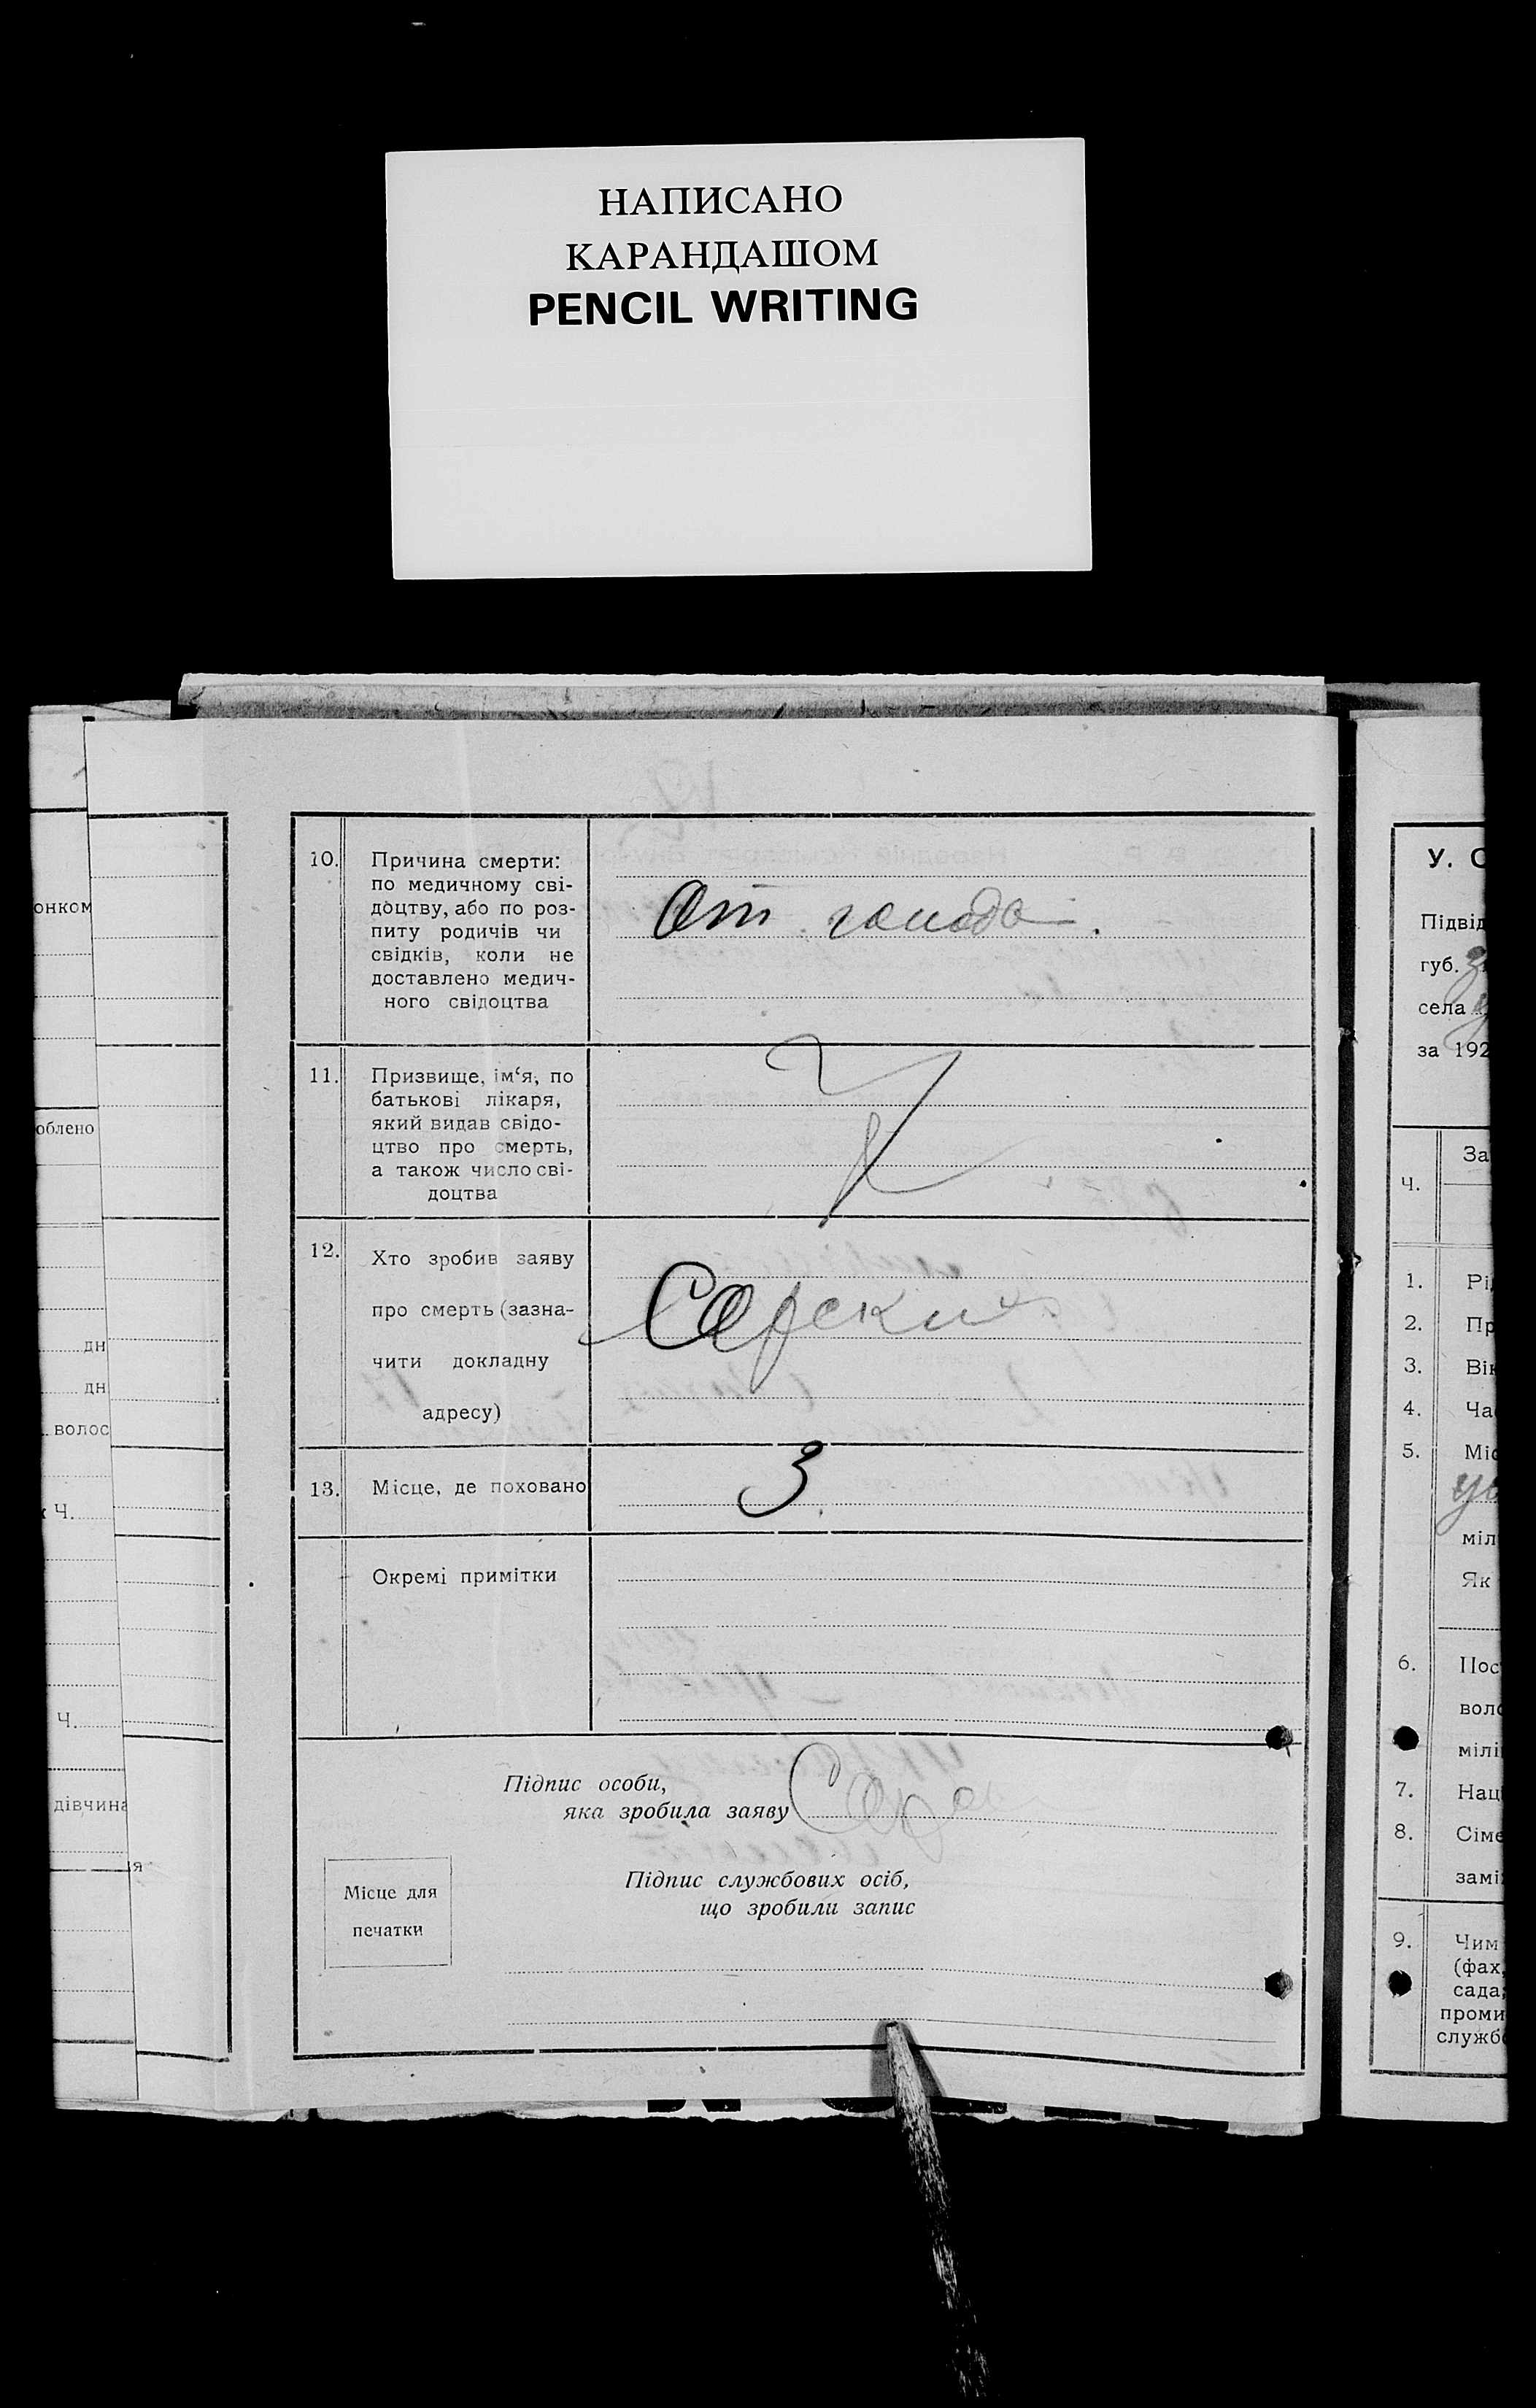 НАПИСАНО
КАРАНДАШОМ
PENCIL WRITING
10.
Причина смерти:
по медичному сві-
доцтву, або по роз-
питу родичів чи
свідків, коли не
доставлено медич-
ного свідоцтва
От голода.
11.
Призвище, ім‘я, по
батькові лікаря,
який видав свідо-
цтво про смерть,
а також число сві-
доцтва
12.
Хто зробив заяву
про смерть (зазна-
чити докладну
адресу)
13.
Місце, де поховано
З.
Окремі примітки
Підпис особи,
яка зробила заяву
Місце для
печатки
Підпис службових осіб,
що зробили запис
онком
облено
дн
дн
волос
Ч.
Ч.
дівчина
я
У. С
Підвід
губ.
села
за 192
Ч.
За
1. Рі
2. Пр
3. Вік
4. Ча
5. Міс
міл
Як
6. Пос
воло
мілі
7. Нац
8. Сіме
замі
9. Чим
(фах,
сада,
проми
службо